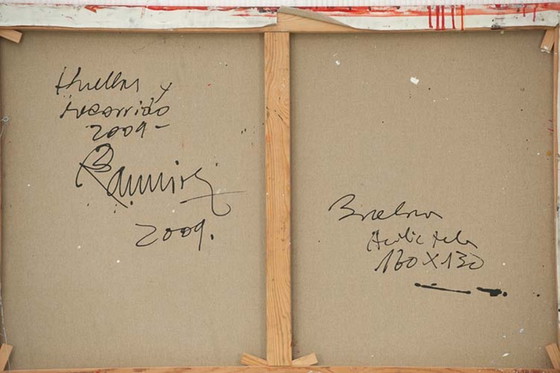 Huellas y
recorrido
2009-
Ramírez
2009.
Acrílic tela
160 x 130